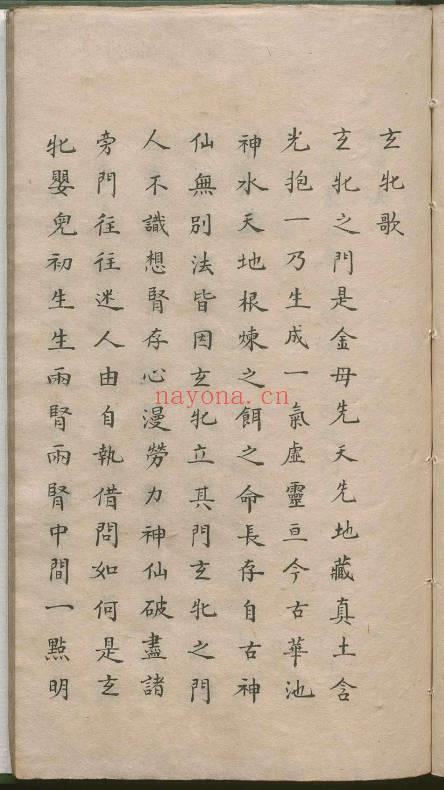 玄牝歌
玄牝之門是金母先天先地藏真土含
光抱一乃生成一氣虛靈亘今古華池
神水天地根煉之餌之命長存自古神
仙無別法皆因玄牝立其門玄牝之門
人不識想腎存心漫勞力神仙破盡諸
旁門往往迷人由自執借問如何是玄
牝嬰兒初生生兩腎兩腎中間一點明
nayona.cn